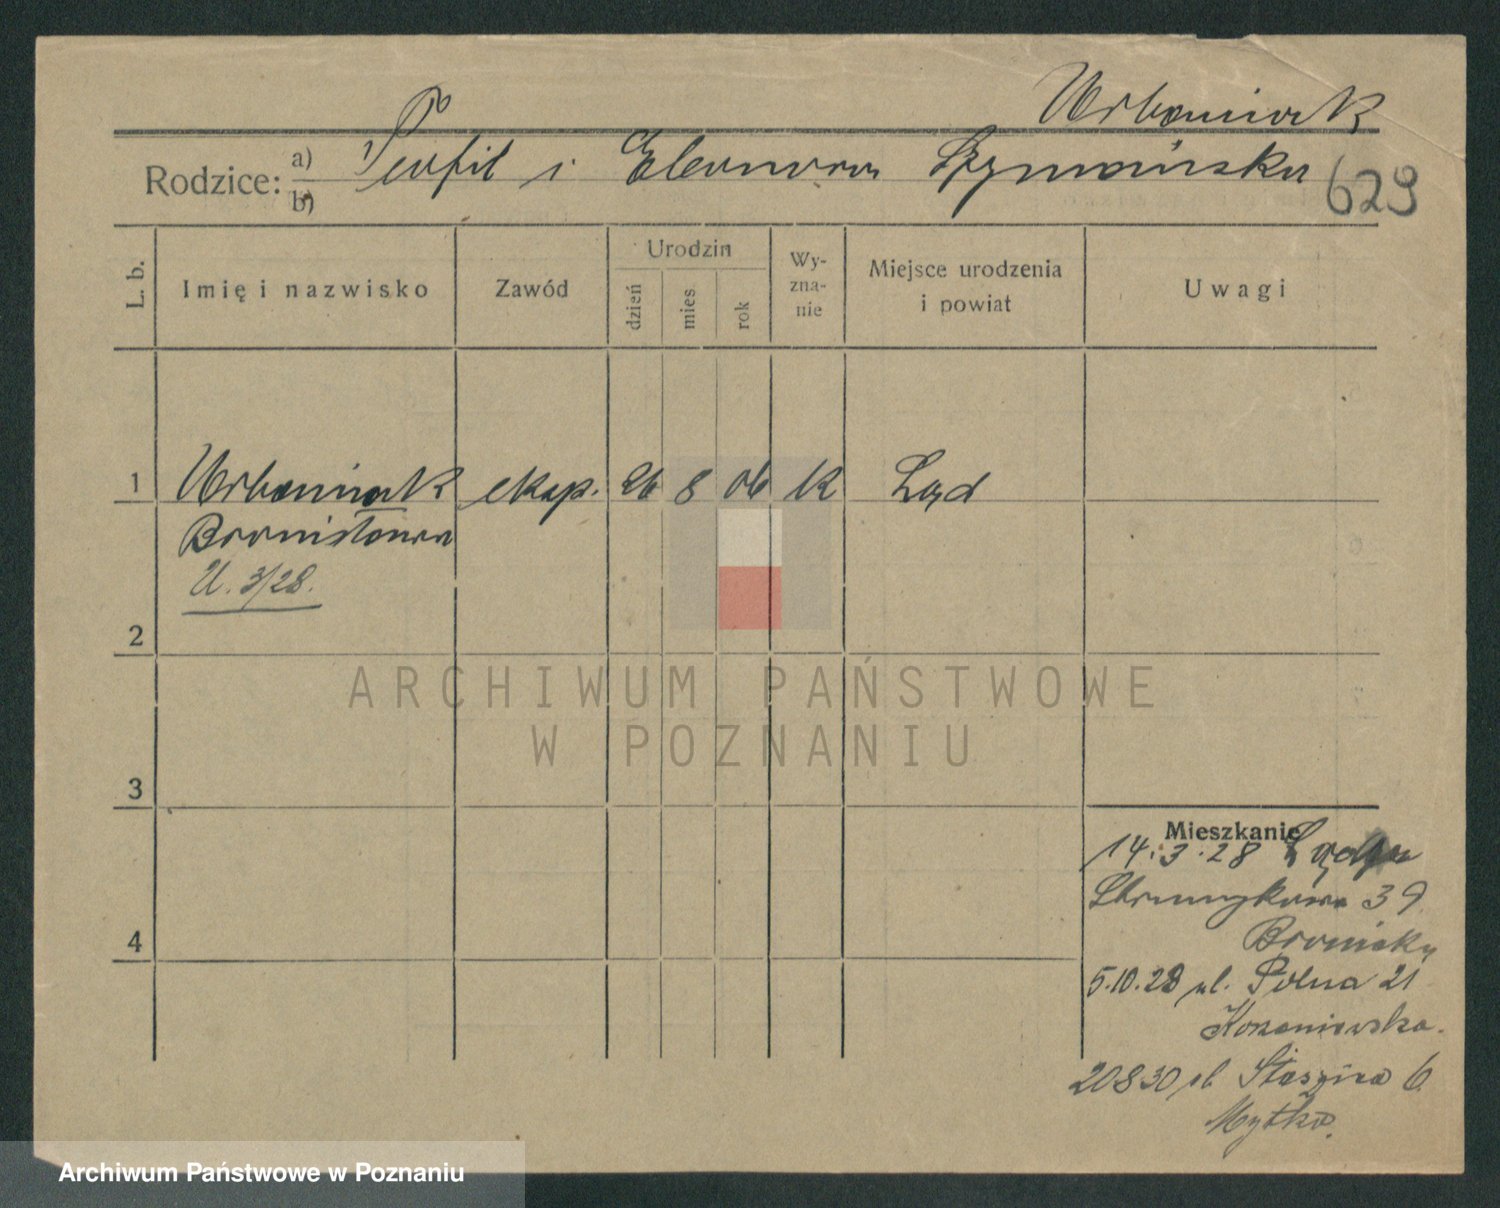 Urbaniak
Rodzice: a) Teofil i Eleonora Szymańska 629
b)
L. b.
Imię i nazwisko
Zawód
Urodzin
dzień
mies
rok
Wy-
zna-
nie
Miejsce urodzenia
i powiat
Uwagi
1 Urbaniak eksp. 26 8 06 K Ląd
Bronisława
U. 3/28.
2
ARCHIWUM PAŃSTWOWE
W POZNANIU
3
Mieszkanie
14.3.28 z Lądu
39
5.10.28 ul. Polna 21
20830 ul Staszica 6
Mytko.
4
Archiwum Państwowe w Poznaniu